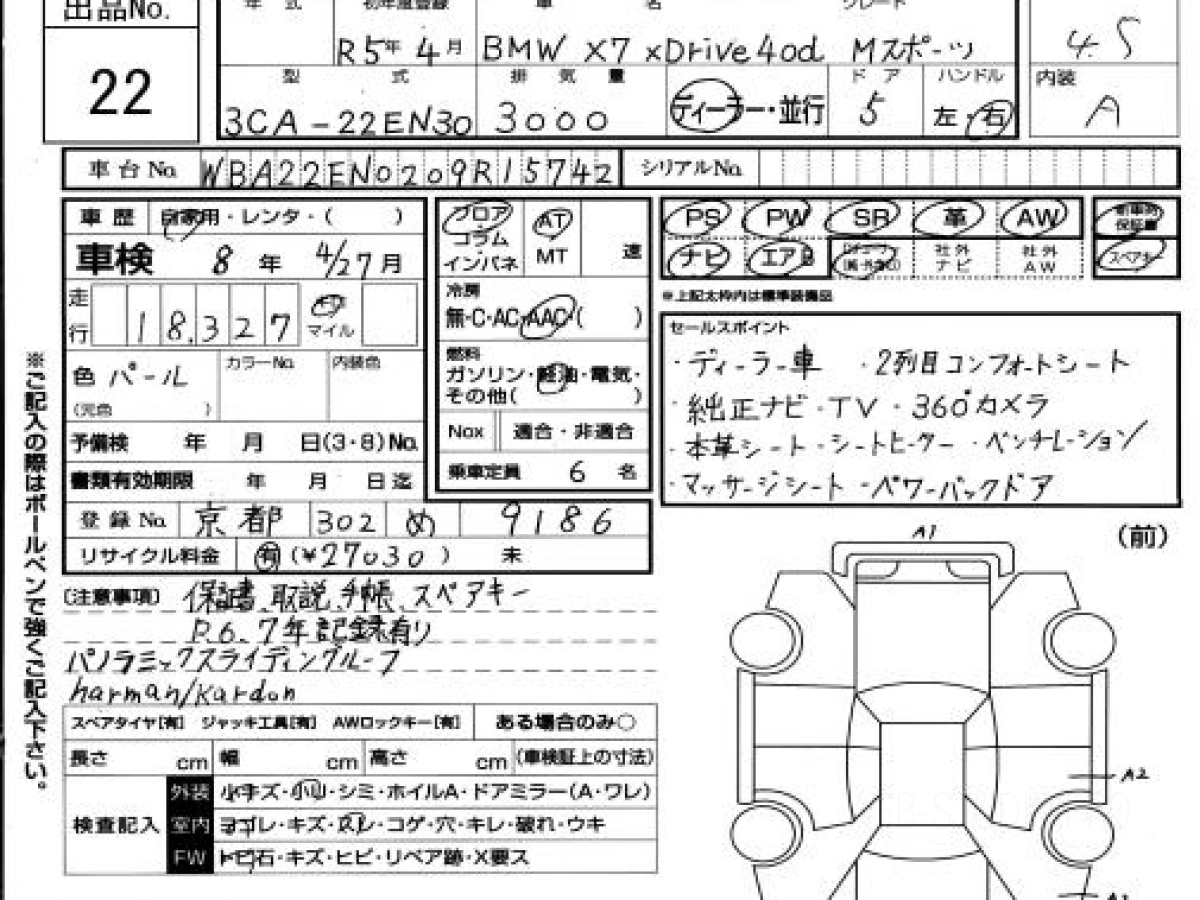 出品No.
22
年 式
初年度登録
車 名
グレード
R5年 4月
BMW X7 xDrive40d Mスポーツ
4.5
型 式
排 気 量
ディーラー・並行
ド ア
ハンドル
内装
3CA-22EN30
3000
5
左・右
A
車台No.
WBA22EN0209R15742
シリアルNo.
車 歴
自家用・レンタ・( )
車検
8年 4/27月
走行
18,327
マイル
色 パール
カラーNo.
内装色
(元色 )
予備検 年 月 日(3・8)No.
書類有効期限 年 月 日迄
登録No.
京都 302 め 9186
リサイクル料金
有 (¥27030 ) 未
フロア
コラム
インパネ
AT
MT
速
冷房
無・C・AC・AAC( )
燃料
ガソリン・軽油・電気・
その他( )
Nox 適合・非適合
乗車定員 6 名
PS PW SR 革 AW
新車時保証書
ナビ エアB
社外ナビ
社外AW
スペアキー
※上記太枠内は標準装備品
セールスポイント
・ディーラー車 ・2列目コンフォートシート
・純正ナビ・TV・360°カメラ
・本革シート・シートヒーター・ベンチレーション
・マッサージシート・パワーバックドア
※ご記入の際はボールペンで強くご記入下さい。
(注意事項) 保証書、取説、手帳、スペアキー
R6、7年記録有り
パノラミックスライディングルーフ
harman/kardon
スペアタイヤ[有] ジャッキ工具[有] AWロックキー[有] ある場合のみ○
長さ cm 幅 cm 高さ cm (車検証上の寸法)
検査記入
外装 小キズ・小凹・シミ・ホイルA・ドアミラー(A・ワレ)
室内 ヨゴレ・キズ・スレ・コゲ・穴・キレ・破れ・ウキ
FW トビ石・キズ・ヒビ・リペア跡・X要ス
(前)
A1
A2